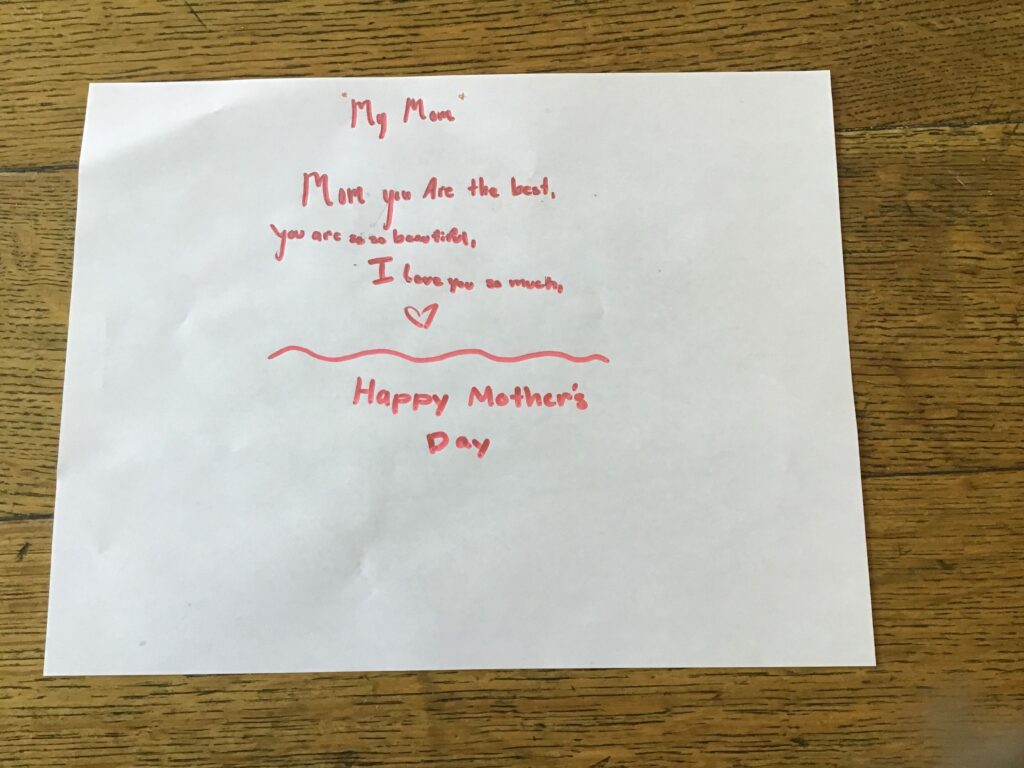 "My Mom"
Mom you Are the best,
you are so so beautiful,
I love you so much,
Happy Mother's
Day